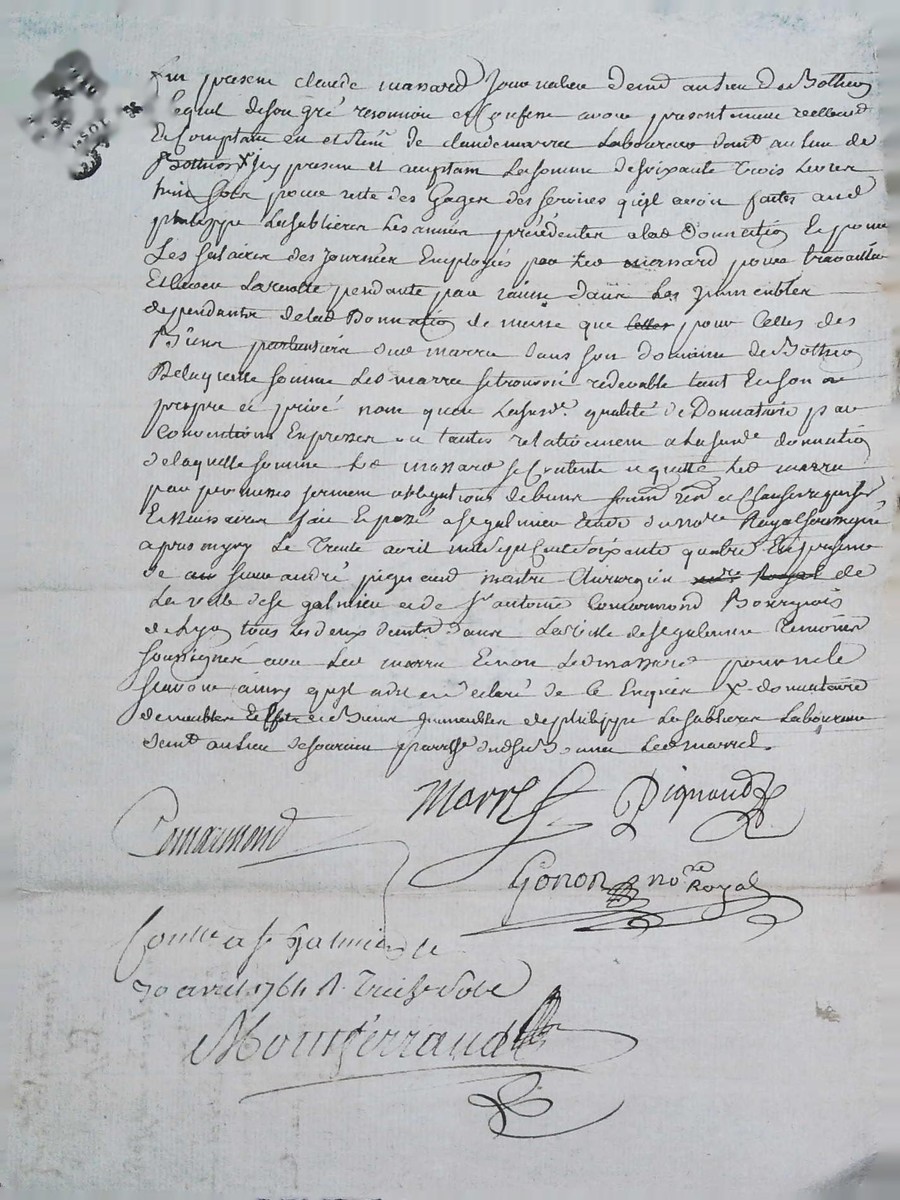 fut present claude massard Journalier demt au lieu de Botheo
lequel de son gré reconnoit et Confesse avoir presentement recellement
Et Comptant eu et de claude marrel Laboureur demt au lieu de
Botheo X icy present et aceptant La somme de soixante trois Livres
huit sols pour reste des Gages des services quil avoit faites aud
philippe Lasabliere Les années précédentes a lad Donnation Et pour
Les salaires des journées Employés par led massard pour travailler
Et lever La recolte pendante par racine dans Les Immeubles
dependants de lad Donnation de meme que celles pour Celles des
Biens particuliers dud marrel dans son domaine de Botheo
De laquelle somme Led marrel se trouvoit redevable tant En son
propre et privé nom quen La susde qualité de Donnataire par
Conventions Expresses ou tacites relativement a La susde donnation
de laquelle somme Led massard se Contente et quitte Led marrel
par promesses serment obligations de biens soumd rend et Clauses requises
Et necessaires fait Et passé a st galmier Etude du nore Royal soussigné
apres mydy Le trente avril mil sept Cent soixante quatre En presence
de an sieur andré pignaud maitre Chirurgien nore Royal de
La ville de st galmier et de sr antoine Comarmond Bourgeois
de Lyon tous Les deux demts dans La ville de st galmier temoins
soussignés avec Led marrel Et non Led massard pour ne le
scavoir ainsy quil a dit et declaré de ce Enquis X donnataire
de meubles Effets et Biens Immeubles de philippe La sabliere Laboureur
demt au lieu de parroisse dud avec Led marrel.
Marrel Pignaud
Comarmond
Gonon nore Royal
Contlé a st Galmier le
30 avril 1764 R. Treize Sols
Montferrand